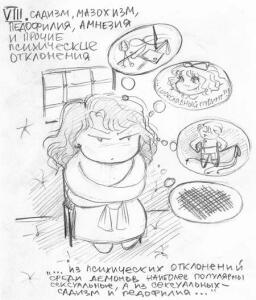 VIII. САДИЗМ, МАЗОХИЗМ,
ПЕДОФИЛИЯ, АМНЕЗИЯ
И ПРОЧИЕ
ПСИХИЧЕСКИЕ
ОТКЛОНЕНИЯ
"... ИЗ ПСИХИЧЕСКИХ ОТКЛОНЕНИЙ
СРЕДИ ДЕМОНОВ НАИБОЛЕЕ ПОПУЛЯРНЫ
СЕКСУАЛЬНЫЕ, А ИЗ СЕКСУАЛЬНЫХ-
САДИЗМ И ПЕДОФИЛИЯ..."